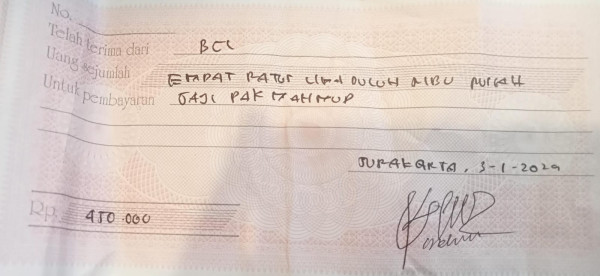 No.
Telah terima dari BCL
Uang sejumlah EMPAT RATUS LIMA PULUH RIBU RUPIAH
Untuk pembayaran GAJI PAK MAHMUD
SURAKARTA, 3-1-2029
Rp. 450.000